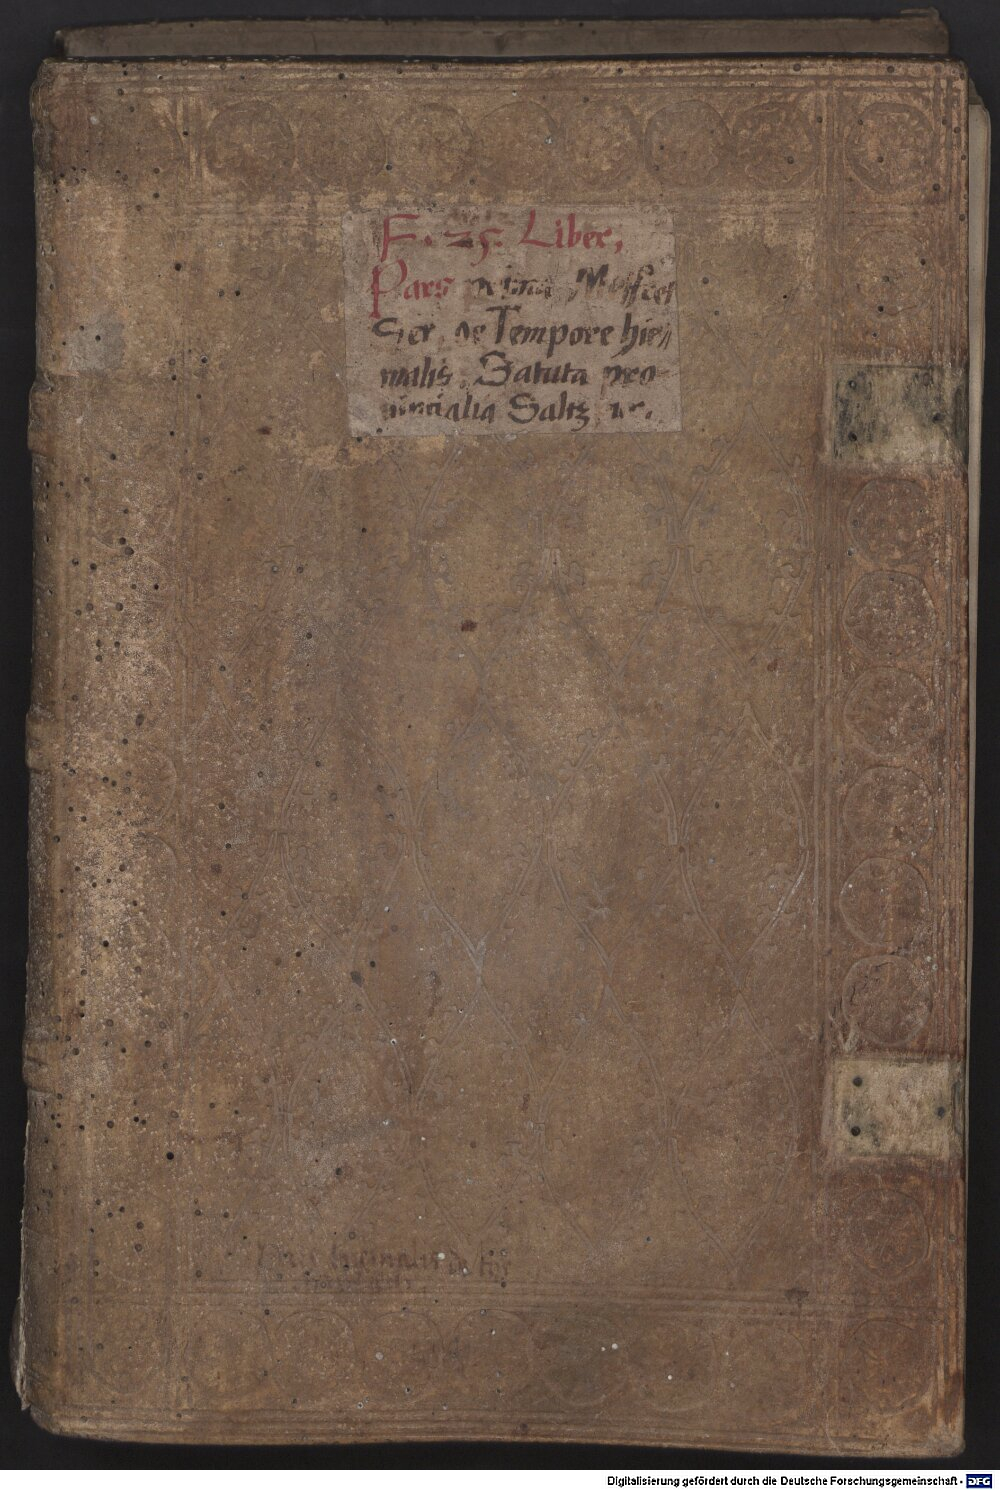 F. 25. Liber,
Pars prima
Ser. de Tempore hie//
malis. Satuta pro
uincialia Saltz. &c.
hiemalis de
Digitalisierung gefördert durch die Deutsche Forschungsgemeinschaft - DFG